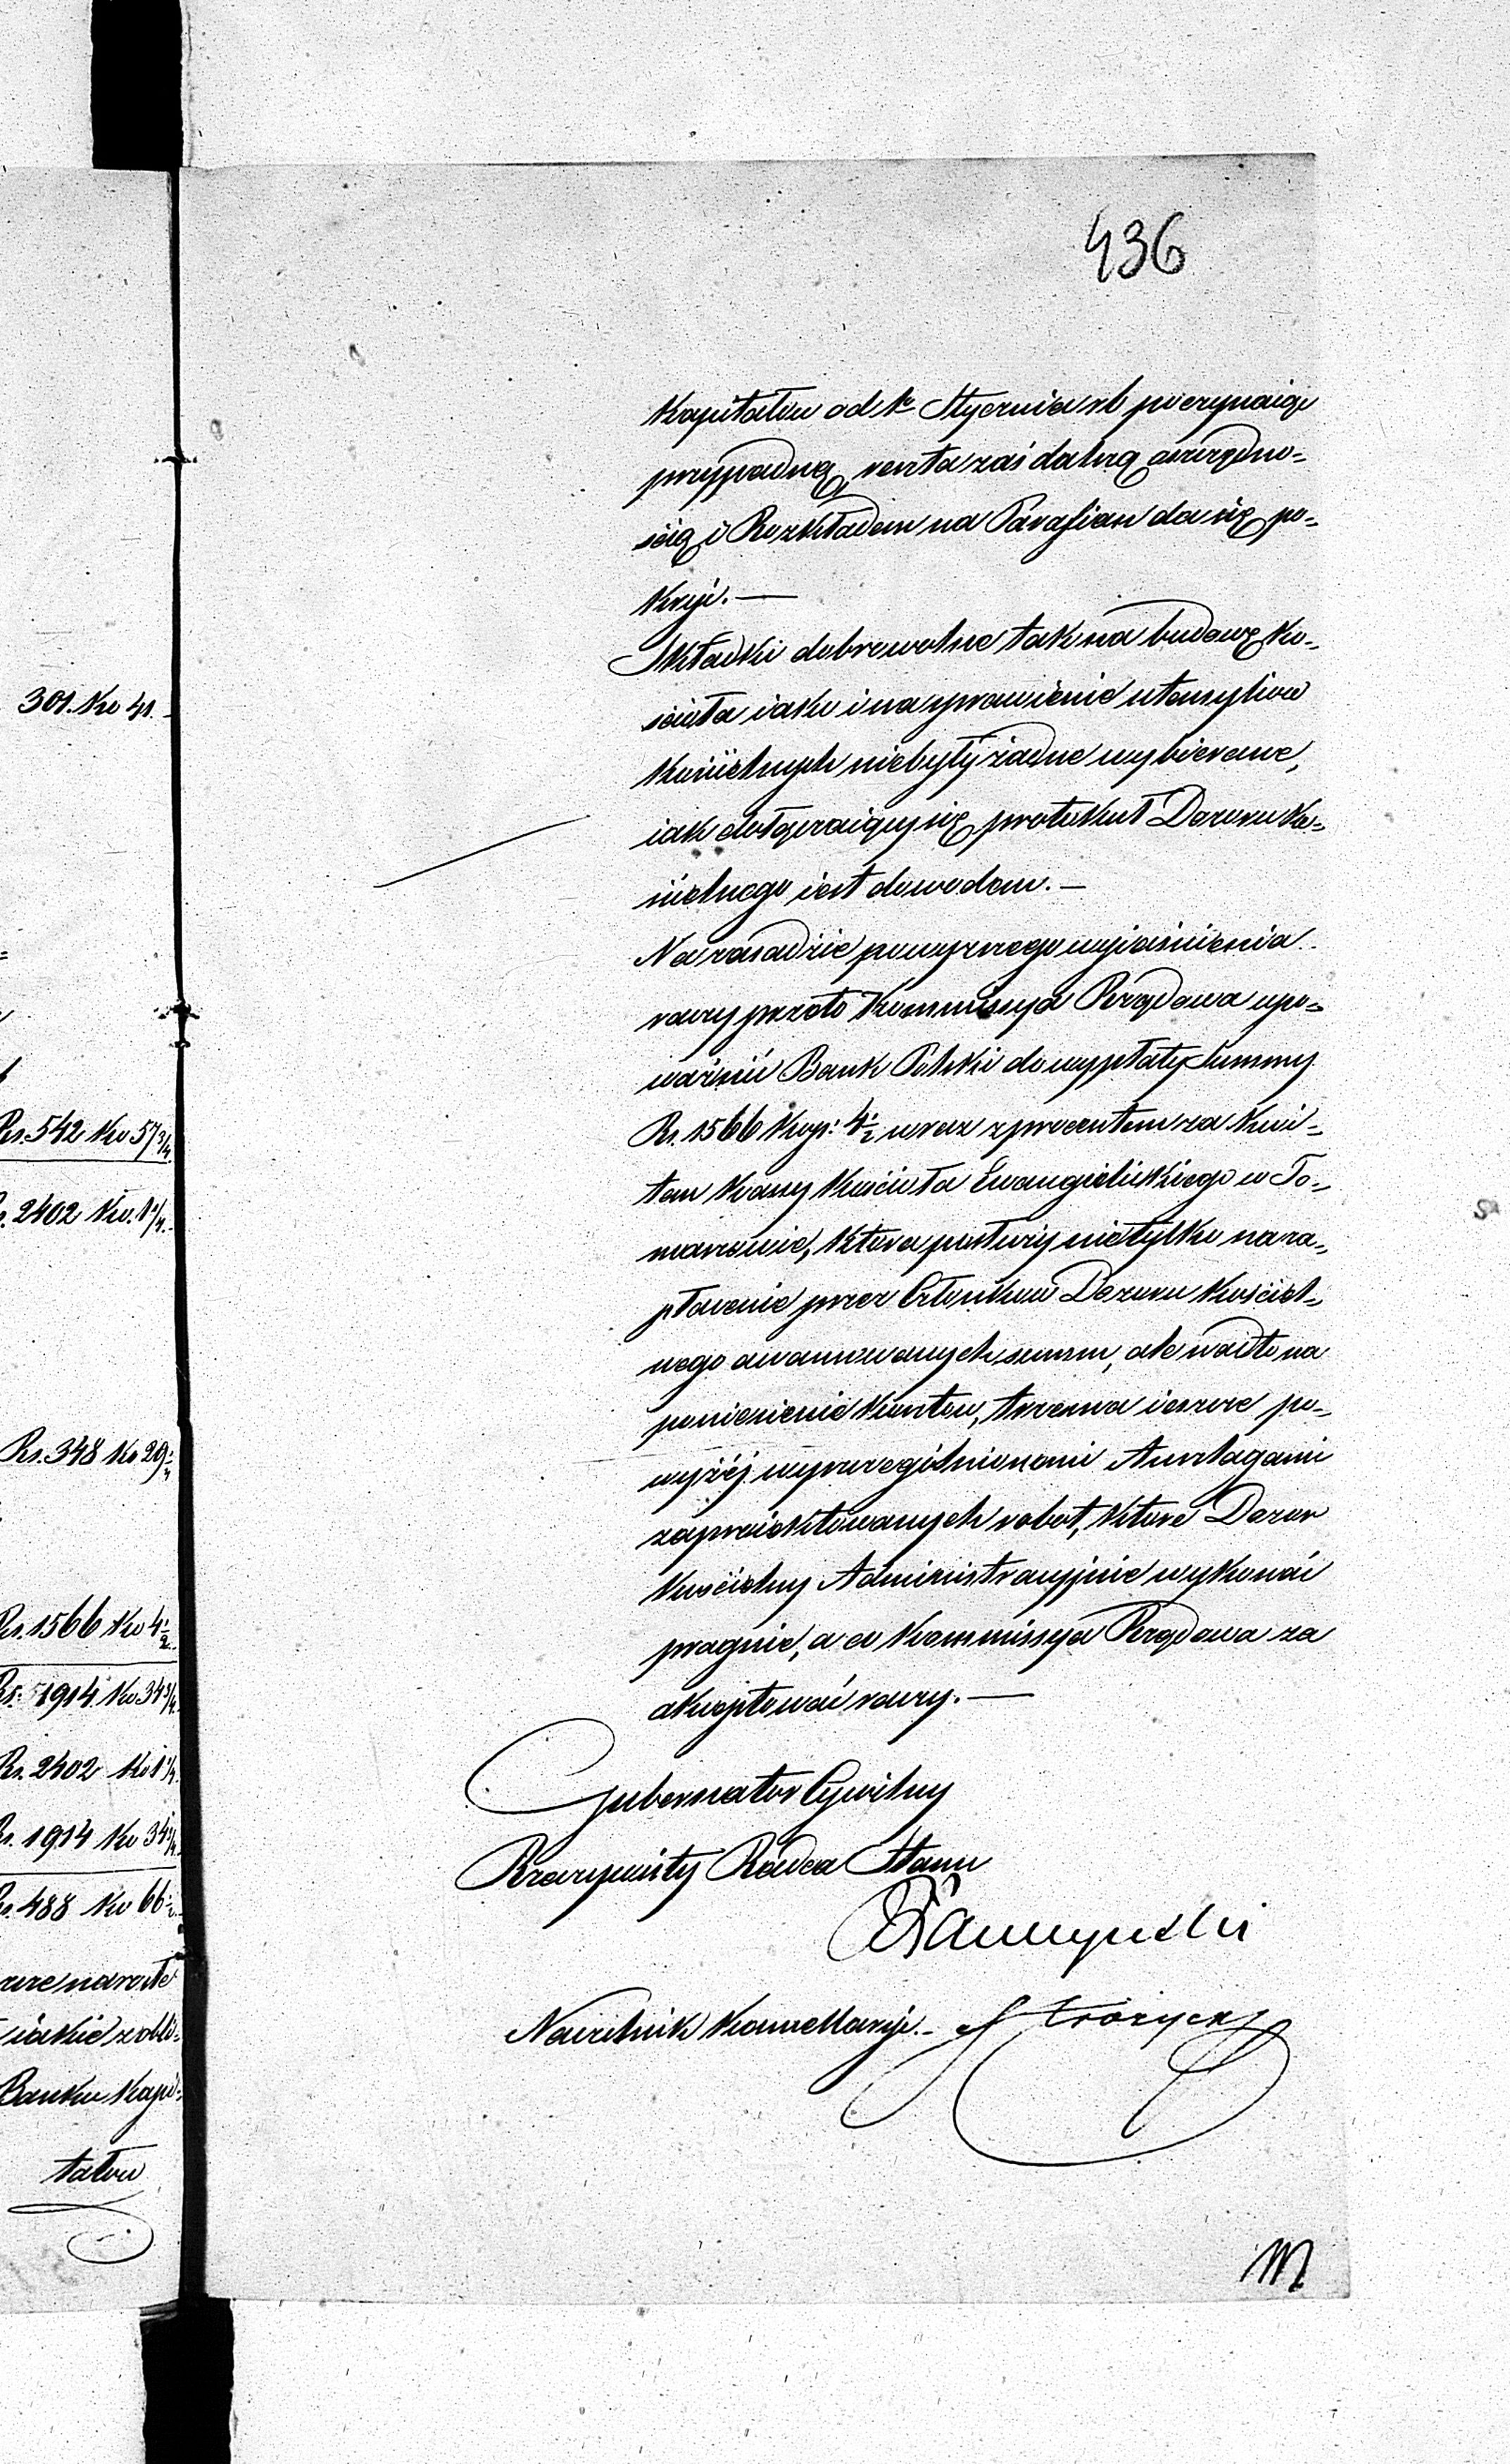 436
Kapitałow od 1go Stycznia rb poczynaiąc
przypadną, reszta zaś dalszą oszczędno=
ścią i Rozkładem na Parafian da się po=
kryć. —
Składki dobrowolne tak na budowę Ko=
ścioła iako i na sprawienie utensyliow
Kościelnych niebyły żadne wybierane,
iak dołączaiący się protokuł Dozoru Ko=
ścielnego iest dowodem. —
Na zasadzie powyzszego wyiaśnienia
raczy przeto Kommissya Rządowa upo=
ważnić Bank Polski do wypłaty Summy
Rs. 1566 Kop: 4½ wraz z procentem za kwi=
tem Kassy Kościoła Ewangielickiego w To=
maszowie, ktora posłuży nietylko na za=
płacenie przez Członkow Dozoru Kościel=
nego awansowanych summ, ale nadto na
poniesienie kosztow, trzema ieszcze po=
wyżéj wyszczegolnionemi Anszlagami
zaproiektowanych robot, ktore Dozor
Kościelny Administracyjnie wykonać
pragnie, a co Kommissya Rządowa za
akceptować raczy. —
Gubernator Cywilny
Rzeczywisty Radca Stanu
Naczelnik Kancellaryi.
301. Ko 41.
Rs. 542 Ko 57¾
2402 Ko. 1¼
Rs. 348 Ko 29¼
Rs. 1566 Ko 4½
Rs. 1914 Ko 34¾
Rs. 2402 Ko 1¼
Rs. 1914 Ko 34¾
488 Ko 66½
iakie z obli=
Banku Kapi=
tałow